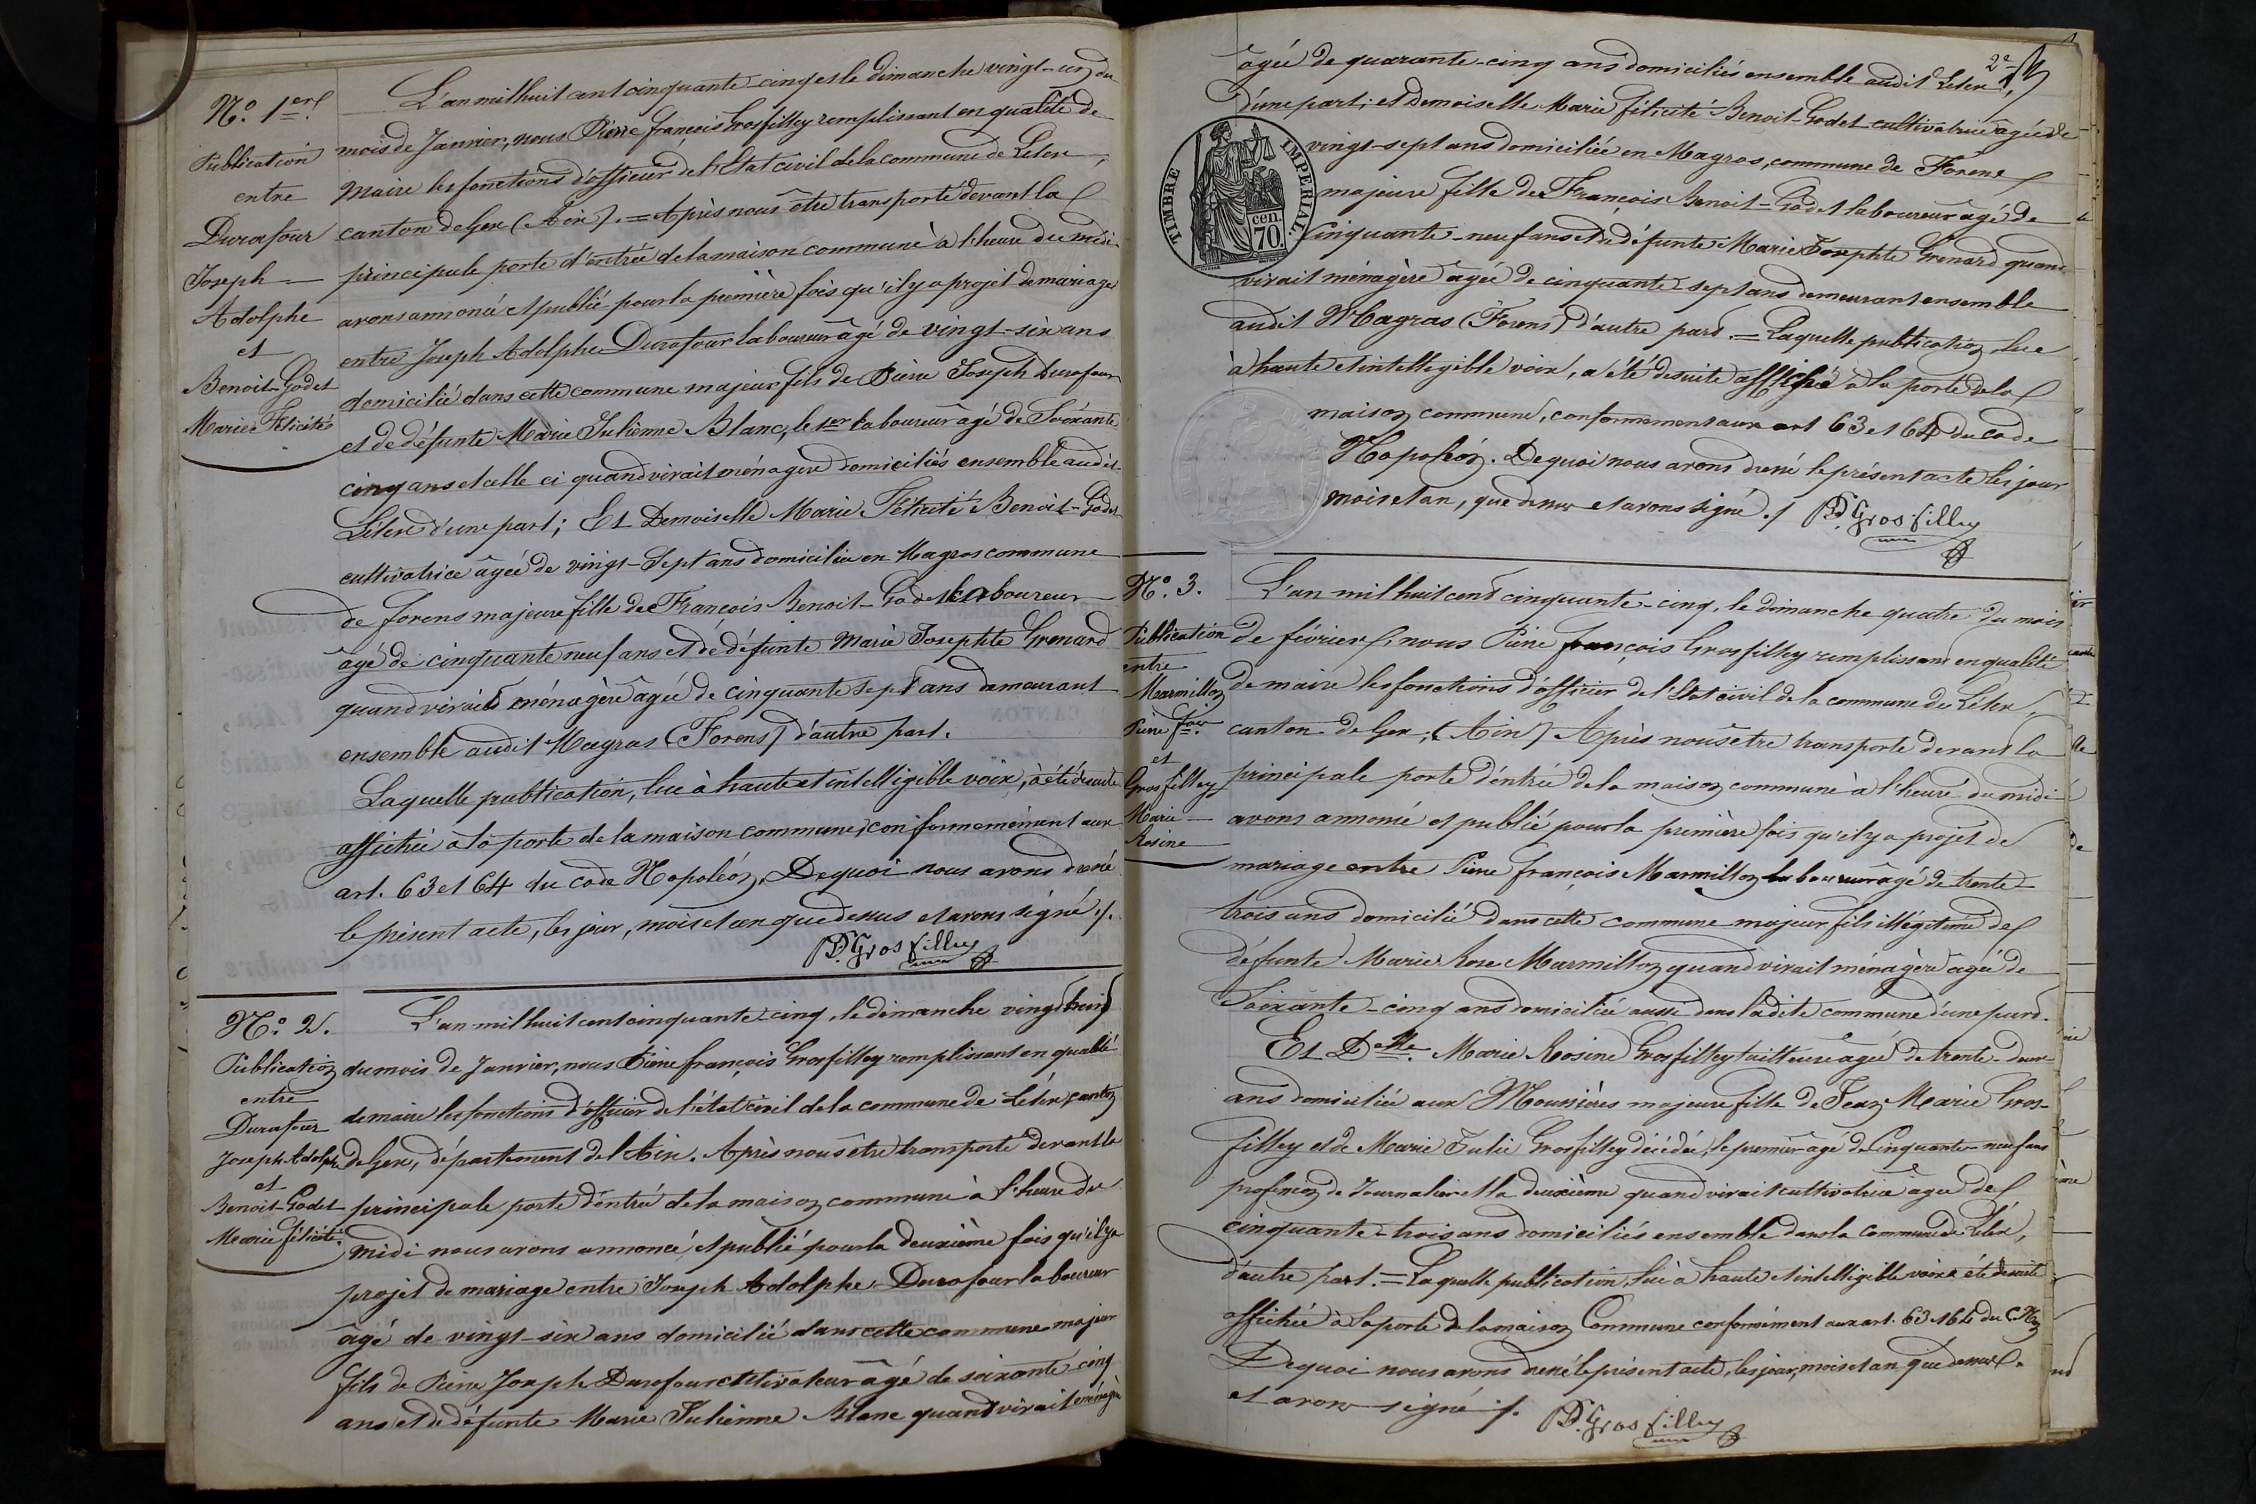 N.º 1er.
Publication
entre
Durafour
Joseph
Adolphe
et
Benoit-Godet
Marie Félicité
L'an mil huit cent cinquante-cinq et le dimanche vingt-un du
mois de Janvier, nous Pierre François Grosfilley remplissant en qualité de
Maire les fonctions d'officier de l'Etat civil de la commune de Lélex,
canton de Gex (Ain). = Après nous être transporté devant la
principale porte d'entrée de la maison commune à l'heure de midi
avons annoncé et publié pour la première fois qu'il y a projet de mariage
entre Joseph Adolphe Durafour laboureur âgé de vingt-six ans
domicilié dans cette commune majeur fils de Pierre Joseph Durafour
et de défunte Marie Julienne Blanc, le 1er laboureur âgé de Soixante
cinq ans et celle ci quand vivait ménagère domiciliés ensemble audit
Lélex d'une part; Et Demoiselle Marie Félicité Benoit-Godet
cultivatrice âgée de vingt-Sept ans domiciliée en Magras commune
de forens majeure fille de François Benoit-Godet laboureur
âgé de cinquante neuf ans et de défunte Marie Josephte Grenard
quand vivait ménagère âgée de cinquante sept ans demeurant
ensemble audit Magras (Forens) d'autre part.
Laquelle publication, lue à haute et intelligible voix, a été de suite
affichée à la porte de la maison commune, conformément aux
art. 63 et 64 du code Napoléon. De quoi nous avons dressé
le présent acte, les jour, mois et an que dessus et avons signé ./.
Grosfilley
N.º 2.
Publication
entre
Durafour
Joseph Adolphe
et
Benoit-Godet
Marie félicité
L'an mil huit cent cinquante-cinq, le dimanche vingt huit
du mois de Janvier, nous Pierre françois Grosfilley remplissant en qualité
de maire les fonctions d'officier de l'état civil de la commune de Lélex, canton
de Gex, département de l'Ain. Après nous être transporté devant la
principale porte d'entrée de la maison commune à l'heure de
midi nous avons annoncé, et publié pour la deuxième fois qu'il y a
projet de mariage entre Joseph Adolphe Durafour laboureur
âgé de vingt-six ans domicilié dans cette commune majeur
fils de Pierre Joseph Durafour cultivateur âgé de soixante-cinq
ans et de défunte Marie Julienne Blanc quand vivait ménagère
2e
âgée de quarante-cinq ans domiciliés ensemble audit Lélex
d'une part; et demoiselle Marie félicité Benoit-Godet cultivatrice âgée de
vingt-sept ans domiciliée en Magras, commune de Forens
majeure fille de François Benoit-Godet laboureur âgé de
Cinquante-neuf ans et de défunte Marie Josephte Grenard quand
vivait ménagère âgée de cinquante-sept ans demeurant ensemble
audit Magras (Forens) d'autre part. = Laquelle publication lue
à haute et intelligible voix, a été de suite affichée à la porte de la
maison commune, conformément aux art 63 et 64 du code
Napoléon. De quoi nous avons dressé le présent acte les jour
mois et an, que dessus et avons signé ./
Grosfilley
TIMBRE IMPERIAL
cen.
70.
N.º 3.
Publication
entre
Marmillon
Pierre fois
et
Grosfilley
Marie
Rosine
L'an mil huit cent cinquante-cinq, le dimanche quatre du mois
de février, nous Pierre françois Grosfilley remplissant en qualité
de maire les fonctions d'officier de l'Etat civil de la commune de Lélex,
canton de Gex; (Ain) Après nous être transporté devant la
principale porte d'entrée de la maison commune à l'heure de midi
avons annoncé et publié pour la première fois qu'il y a projet de
mariage entre Pierre françois Marmillon laboureur âgé de trente
trois ans domicilié dans cette commune majeur fils illégitime de
défunte Marie Rose Marmillon quand vivait ménagère âgée de
Soixante-cinq ans domiciliée aussi dans ladite commune d'une part.
Et Delle. Marie Rosine Grosfilley tailleuse âgée de trente-deux
ans domiciliée aux Moussières majeure fille de Jean Marie Gros-
filley et de Marie Julie Grosfilley décédée, le premier âgé de Cinquante-neuf ans
profession de Journalier et la deuxième quand vivait cultivatrice âgée de
cinquante-trois ans domiciliés ensemble dans la commune de Lélex,
d'autre part. = Laquelle publication, lue à haute et intelligible voix a été de suite
affichée à la porte de la maison Commune conformément aux art. 63 et 64 du C. Non
De quoi nous avons dressé le présent acte, les jour, mois et an, que dessus
et avons signé ./.
Grosfilley